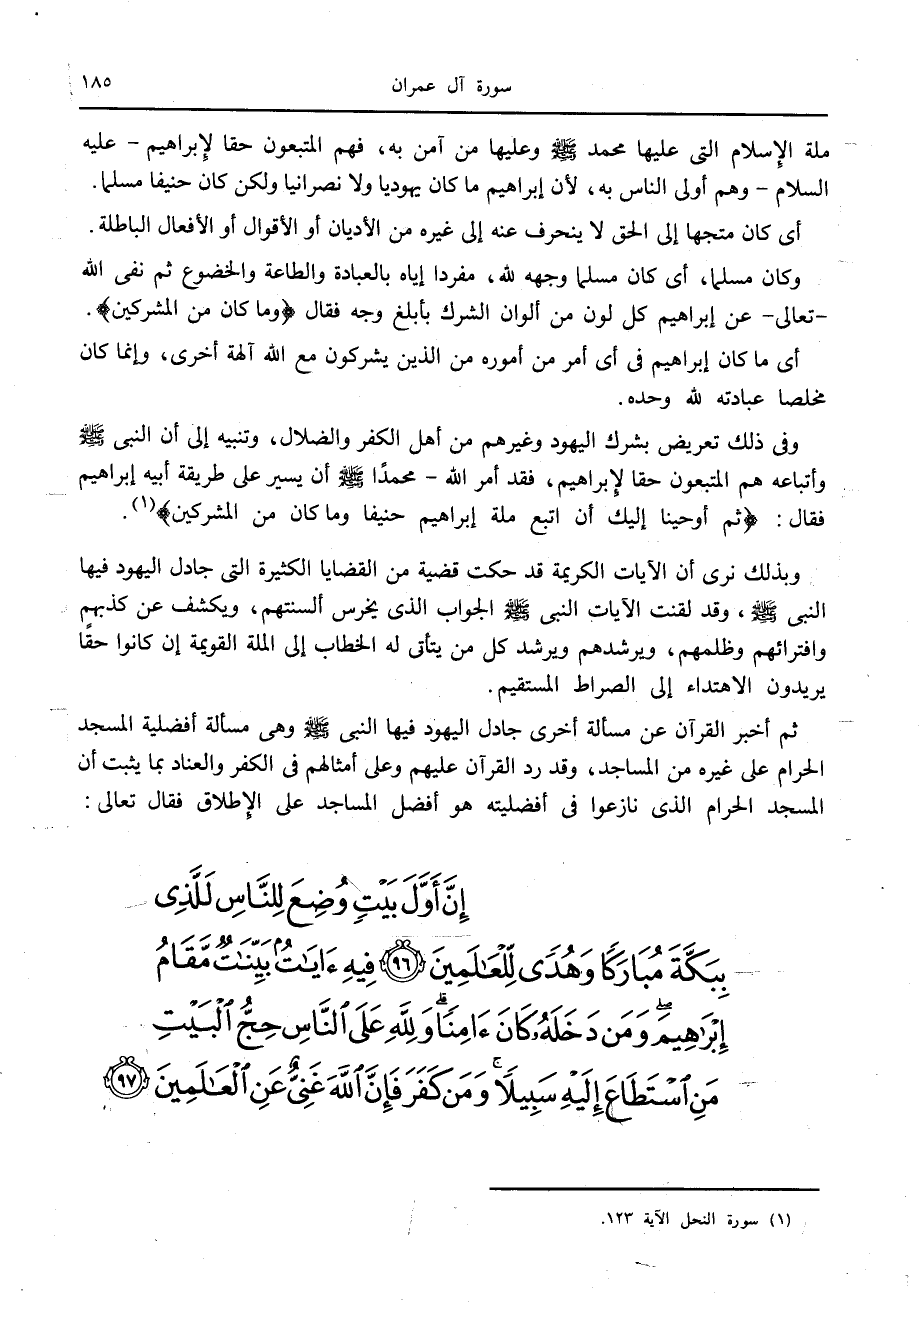 سورة آل عمران ١٨٥
ملة الإسلام التى عليها محمد ﷺ وعليها من آمن به، فهم المتبعون حقا لإبراهيم - عليه
السلام - وهم أولى الناس به، لأن إبراهيم ما كان يهوديا ولا نصرانيا ولكن كان حنيفا مسلما.
أى كان متجها إلى الحق لا ينحرف عنه إلى غيره من الأديان أو الأقوال أو الأفعال الباطلة.
وكان مسلما، أى كان مسلما وجهه لله، مفردا إياه بالعبادة والطاعة والخضوع ثم نفى الله
-تعالى- عن إبراهيم كل لون من ألوان الشرك بأبلغ وجه فقال ﴿وما كان من المشركين﴾.
أى ما كان إبراهيم فى أى أمر من أموره من الذين يشركون مع الله آلهة أخرى، وإنما كان
مخلصا عبادته لله وحده.
وفى ذلك تعريض بشرك اليهود وغيرهم من أهل الكفر والضلال، وتنبيه إلى أن النبى ﷺ
وأتباعه هم المتبعون حقا لإبراهيم، فقد أمر الله - محمدًا ﷺ أن يسير على طريقة أبيه إبراهيم
فقال: ﴿ثم أوحينا إليك أن اتبع ملة إبراهيم حنيفا وما كان من المشركين﴾(١).
وبذلك نرى أن الآيات الكريمة قد حكت قضية من القضايا الكثيرة التى جادل اليهود فيها
النبى ﷺ، وقد لقنت الآيات النبى ﷺ الجواب الذى يخرس ألسنتهم، ويكشف عن كذبهم
وافترائهم وظلمهم، ويرشدهم ويرشد كل من يتأتى له الخطاب إلى الملة القويمة إن كانوا حقًا
يريدون الاهتداء إلى الصراط المستقيم.
ثم أخبر القرآن عن مسألة أخرى جادل اليهود فيها النبى ﷺ وهى مسألة أفضلية المسجد
الحرام على غيره من المساجد، وقد رد القرآن عليهم وعلى أمثالهم فى الكفر والعناد بما يثبت أن
المسجد الحرام الذى نازعوا فى أفضليته هو أفضل المساجد على الإطلاق فقال تعالى:
إِنَّ أَوَّلَ بَيْتٍ وُضِعَ لِلنَّاسِ لَلَّذِى
بِبَكَّةَ مُبَارَكًا وَهُدًى لِّلْعَالَمِينَ ﴿٩٦﴾ فِيهِ ءَايَاتٌ بَيِّنَاتٌ مَّقَامُ
إِبْرَاهِيمَ ۖ وَمَن دَخَلَهُۥ كَانَ ءَامِنًا ۗ وَلِلَّهِ عَلَى ٱلنَّاسِ حِجُّ ٱلْبَيْتِ
مَنِ ٱسْتَطَاعَ إِلَيْهِ سَبِيلًا ۚ وَمَن كَفَرَ فَإِنَّ ٱللَّهَ غَنِىٌّ عَنِ ٱلْعَالَمِينَ ﴿٩٧﴾
(١) سورة النحل الآية ١٢٣.